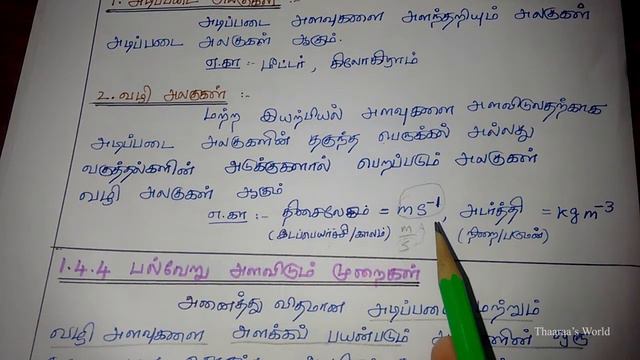 1. அடிப்படை அலகுகள் :-
அடிப்படை அளவுகளை அளந்தறியும் அலகுகள்
அடிப்படை அலகுகள் ஆகும்.
எ.கா :- மீட்டர் , கிலோகிராம்
2. வழி அலகுகள் :-
மற்ற இயற்பியல் அளவுகளை அளவிடுவதற்காக
அடிப்படை அலகுகளின் தகுந்த பெருக்கல் அல்லது
வகுத்தல்களின் அடுக்குகளால் பெறப்படும் அலகுகள்
வழி அலகுகள் ஆகும்
எ.கா :- திசைவேகம் = ms⁻¹, அடர்த்தி = kgm⁻³
(இடப்பெயர்ச்சி/காலம்) m/s (நிறை/பருமன்)
1.4.4 பல்வேறு அளவிடும் முறைகள்
அனைத்து விதமான அடிப்படை மற்றும்
வழி அளவுகளை அளக்கப் பயன்படும் ஒரு
Thaaraa's World